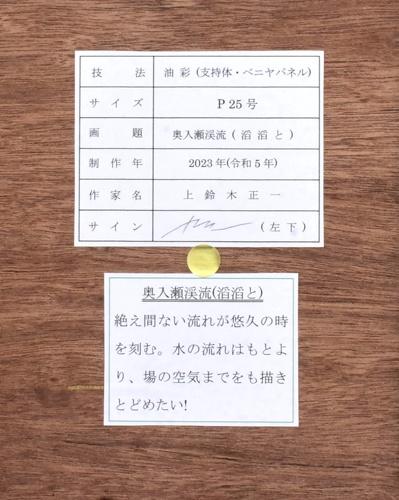 技法 油彩 (支持体・ベニヤパネル)
サイズ P 25号
画題 奥入瀬渓流 ( 滔滔と )
制作年 2023年(令和5年)
作家名 上鈴木正一
サイン (左下)
奥入瀬渓流(滔滔と)
絶え間ない流れが悠久の時
を刻む。水の流れはもとよ
り、場の空気までをも描き
とどめたい!